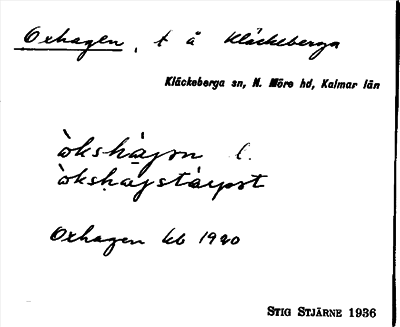 Oxhagen, t å Kläckeberga
Kläckeberga sn, N. Möre hd, Kalmar län
òkshàjən l.
òkshajstàrpət
Oxhagen kb 1920
STIG STJÄRNE 1936